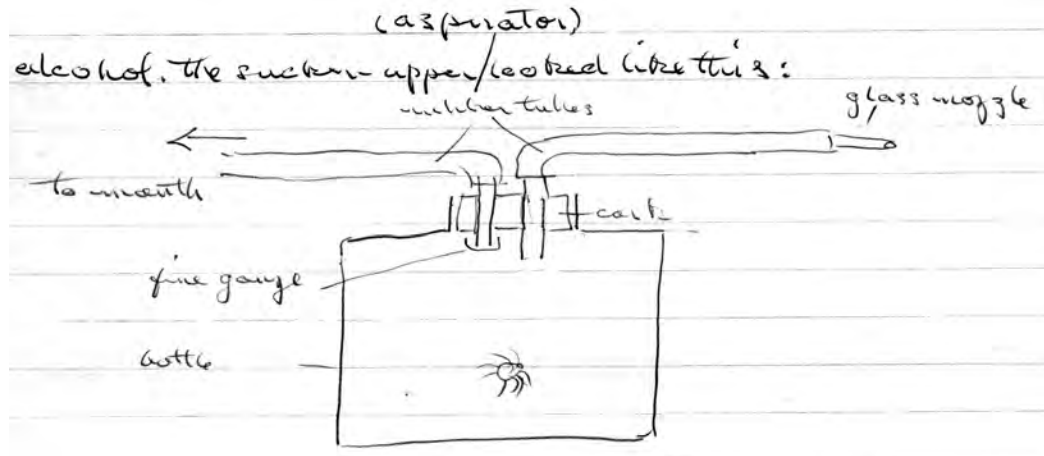 (aspirator)
alcohol. The sucker-upper/looked like this:
rubber tubes
glass nozzle
to mouth
cork
fine gauze
bottle